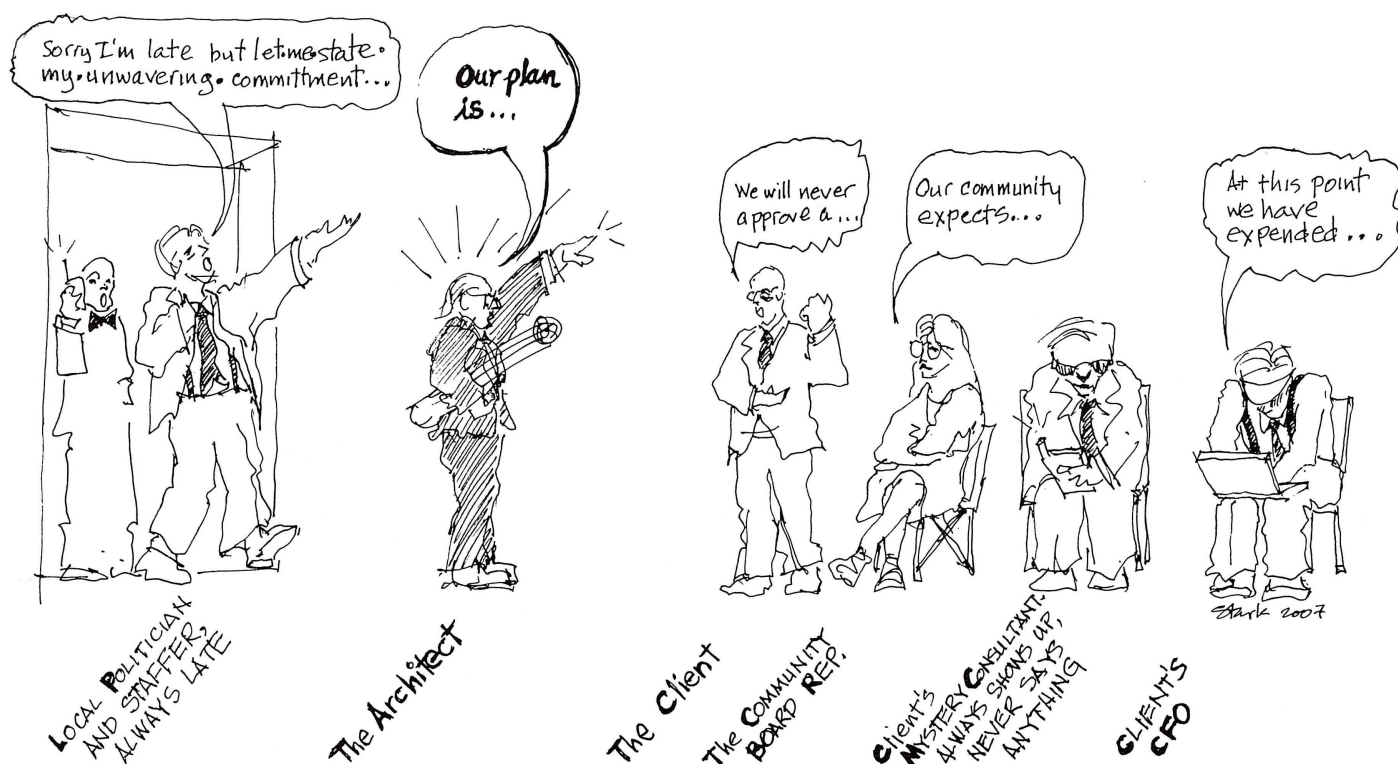 Sorry I'm late but let•me•state•
my•unwavering•committment...
Our plan
is...
We will never
approve a...
Our community
expects...
At this point
we have
expended...
Stark 2007
LOCAL POLITICIAN
AND STAFFER,
ALWAYS LATE
The Architect
The Client
The COMMUNITY
BOARD REP.
Client's
MYSTERY CONSULTANT.
ALWAYS SHOWS UP,
NEVER SAYS
ANYTHING
CLIENT'S
CFO